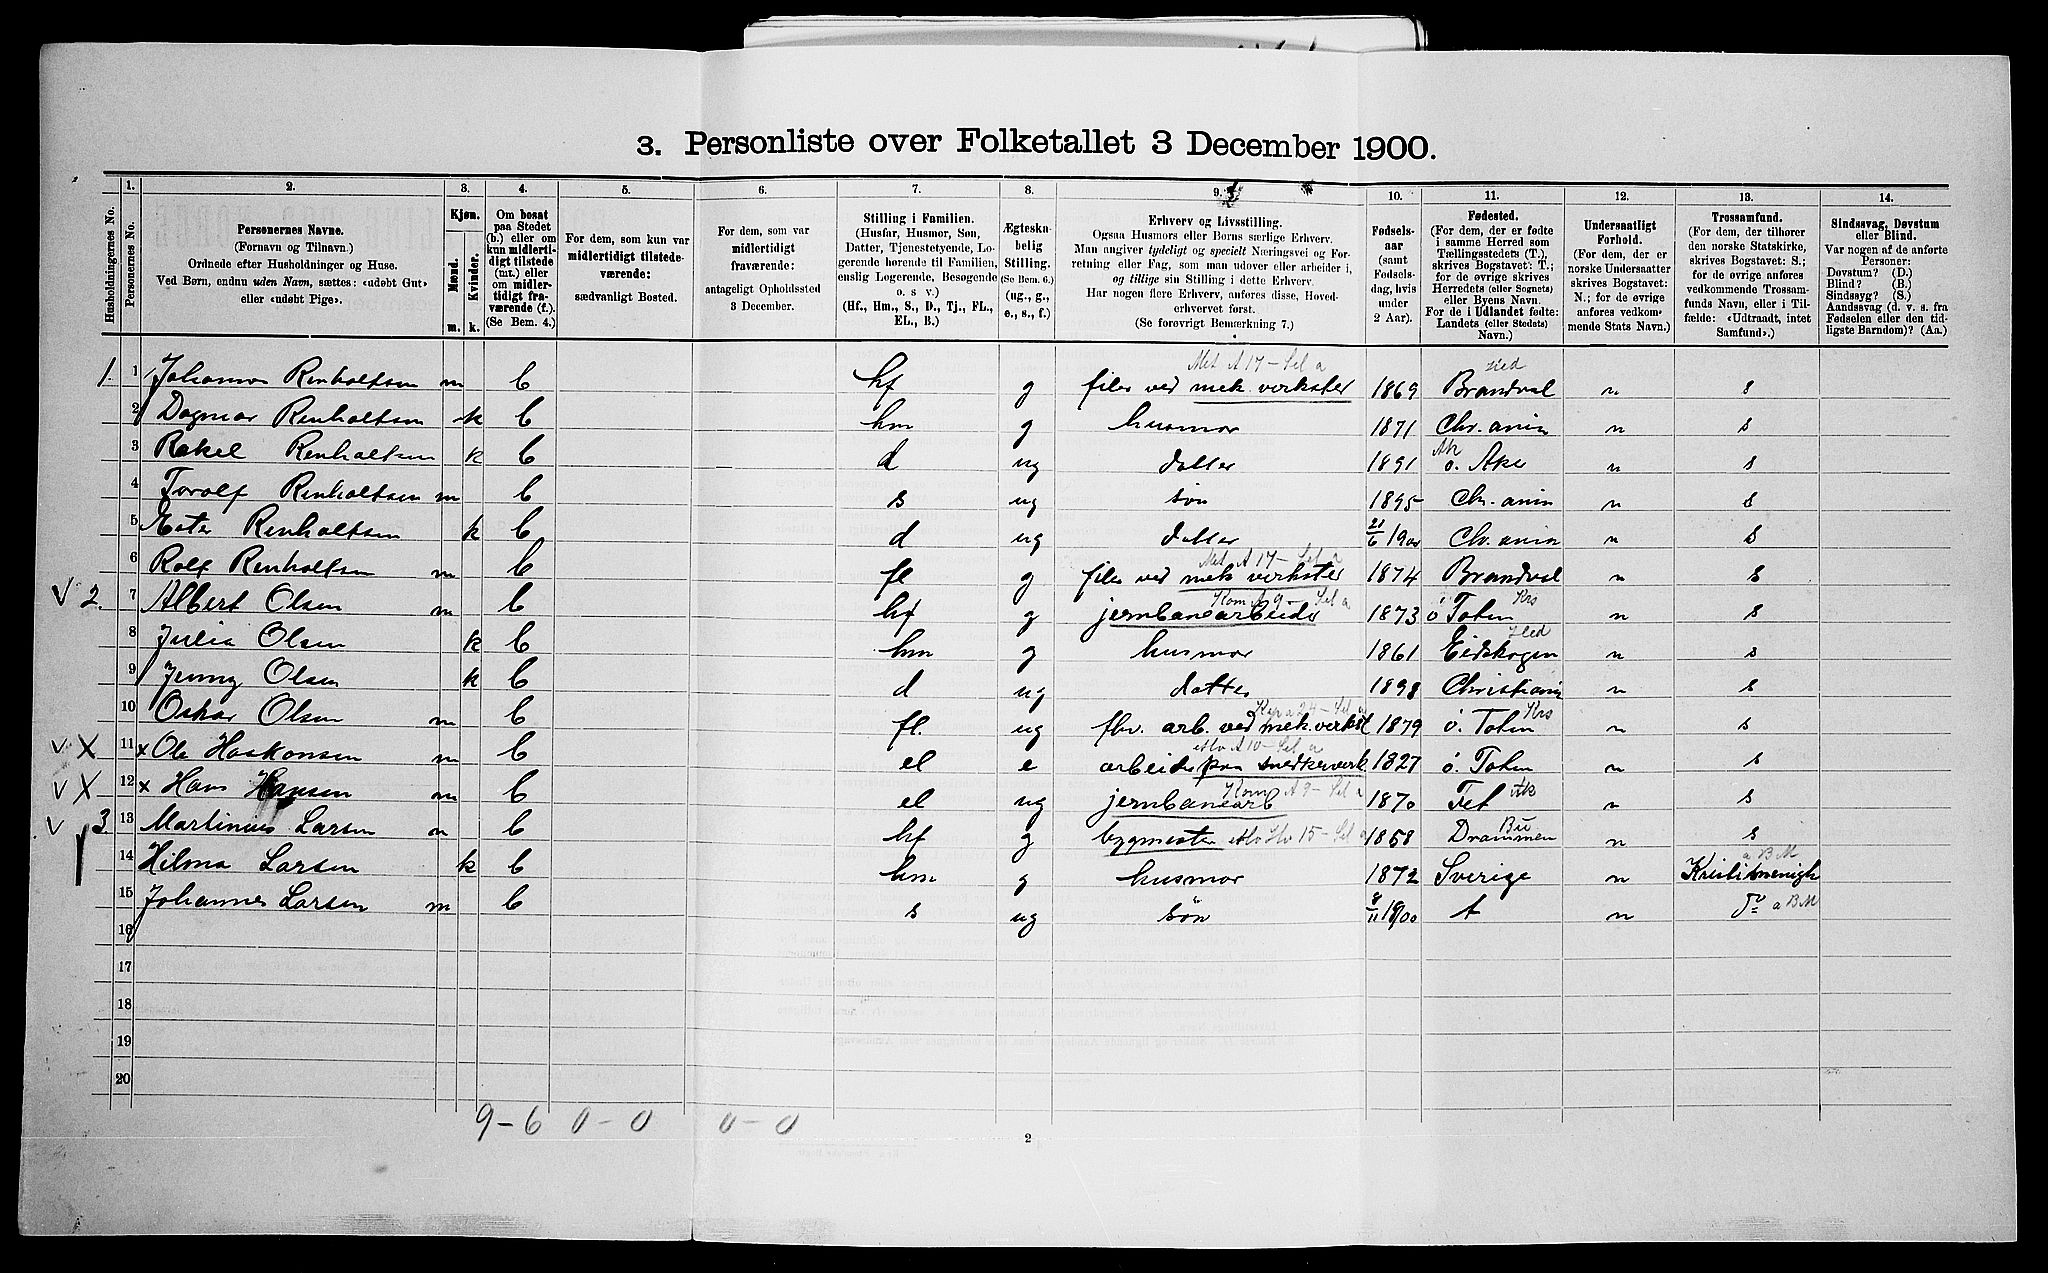 3. Personliste over Folketallet 3 December 1900.
1. 2. 3. 4. 5. 6. 7. 8. 9. 10. 11. 12. 13. 14.
Husholdningernes No.
Personernes No.
Personernes Navne.
(Fornavn og Tilnavn.)
Ordnede efter Husholdninger og Huse.
Ved Børn, endnu uden Navn, sættes: «udøbt Gut»
eller «udøbt Pige».
Kjøn.
Mænd.
Kvinder.
m. k.
Om bosat
paa Stedet
(b.) eller om
kun midlerti-
digt tilstede
(mt.) eller
om midler-
tidigt fra-
værende (f.).
(Se Bem. 4.)
For dem, som kun var
midlertidigt tilstede-
værende:
sædvanligt Bosted.
For dem, som var
midlertidigt
fraværende:
antageligt Opholdssted
3 December.
Stilling i Familien.
(Husfar, Husmor, Søn,
Datter, Tjenestetyende, Lo-
gerende hørende til Familien,
enslig Logerende, Besøgende
o. s v.)
(Hf., Hm., S., D., Tj., FL.,
EL., B.)
Ægteska-
belig
Stilling.
(Se Bem. 6.)
(ug., g.,
e., s., f.)
Erhverv og Livsstilling.
Ogsaa Husmors eller Børns særlige Erhverv.
Man angiver tydeligt og specielt Næringsvei og For-
retning eller Fag, som man udover eller arbeider i,
og tillige sin Stilling i dette Erhverv.
Har nogen flere Erhverv, anføres disse, Hoved-
erhvervet først.
(Se forøvrigt Bemærkning 7.)
Fødsels-
aar
(samt
Fødsels-
dag, hvis
under
2 Aar).
Fødested.
(For dem, der er fødte
i samme Herred som
Tællingsstedets (T.),
skrives Bogstavet: T.;
for de øvrige skrives
Herredets (eller Sognets)
eller Byens Navn.
For de i Udlandet fødte:
Landets (eller Stedets)
Navn.)
Undersaatligt
Forhold.
(For dem, der er
norske Undersaatter
skrives Bogstavet:
N.; for de øvrige
anføres vedkom-
mende Stats Navn.)
Trossamfund.
(For dem, der tilhører
den norske Statskirke,
skrives Bogstavet: S.;
for de øvrige anføres
vedkommende Trossam-
funds Navn, eller i Til-
fælde: «Udtraadt, intet
Samfund».)
Sindssvag, Døvstum
eller Blind.
Var nogen af de anførte
Personer:
Døvstum? (D.)
Blind? (B.)
Sindssyg? (S.)
Aandssvag (d. v. s. fra
Fødselen eller den tid-
ligste Barndom)? (Aa.)
Met A 17 – Lel a Hed
1. 1 Johannes Renholtsen m b hf g filer ved mek. verkster 1869 Brandval n s
2 Dagmar Renholtsen k b hm g husmor 1871 Chr. ania n s
3 Rakel Renholtsen k b d ug datter 1891 Ak ö. Aker n s
4 Torolf Renholtsen m b s ug søn 1895 Chr. ania n s
5 Ester Renholtsen k b d ug datter 21/6 1900 Chr. ania n s
Met A 17 – Lel a
6 Rolf Renholtsen m b fl g filer ved mek verkster 1874 Brandval n s
Kom A 9 – Lel a Krs
V 2. 7 Albert Olsen m b hf g jernbanearbeider 1873 ö Toten n s
8 Julia Olsen k b hm g husmor 1861 Eidskogen Hed n s
9 Jenny Olsen k b d ug datter 1898 Christiania n s
10 Oskar Olsen m b fl. ug fbr. arb. ved mek. verkst 1879 ö. Toten Krs n s
V X 11 x Ole Haakonsen m b el e arbeider paa snedkerverk 1827 ö. Toten n s
Kom A 9 – Lel a
V X 12 x Hans Hansen m b el ug jernbanearb 1870 Fet Ak n s
V 3 13 Martinius Larsen m b hf g bygmester 15 – Lel a 1858 Drammen Bu n s
a B M
14 Hilma Larsen k b hm g husmor 1872 Sverige n Kristi menigh
15 Johannes Larsen m b s ug søn 8/11 1900 t n do a B M
16
17
18
19
20
9 – 6 0 – 0 0 – 0
2